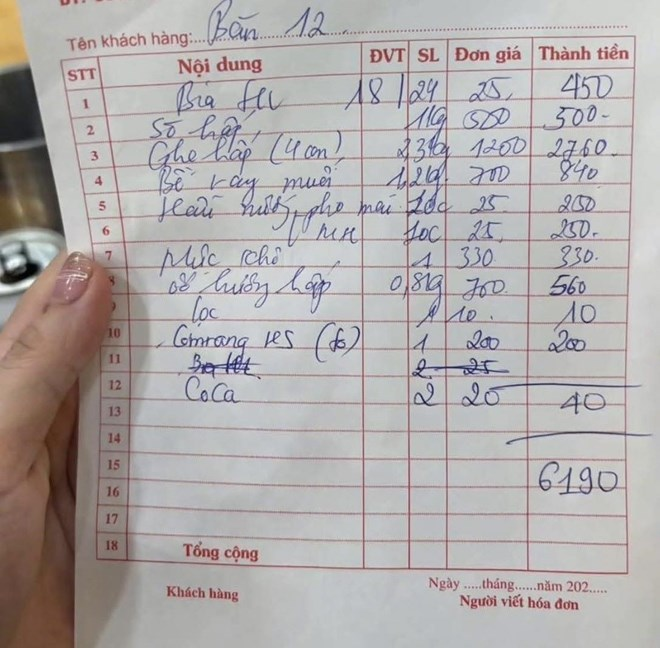 Tên khách hàng: Bàn 12
STT Nội dung ĐVT SL Đơn giá Thành tiền
1 Bia 18/24 25, 450
2 Sò hấp, 1kg 500 500-
3 Ghẹ hấp (4 con) 2,3kg 1200 2760
4 Bề ray muối 1,2kg 700 840
5 Hàu nướng pho mai 10c 25 250
6 MH 10c 25, 250.
7 1 330 330.
8 ốc hương hấp 0,8kg 700. 560
9 lọc 1 10. 10
10 Cơm rang HS (to) 1 200 200
11 2 25
12 CoCa 2 20 40
13
14
15 6190
16
17
18 Tổng cộng
Ngày .....tháng......năm 202.....
Khách hàng Người viết hóa đơn